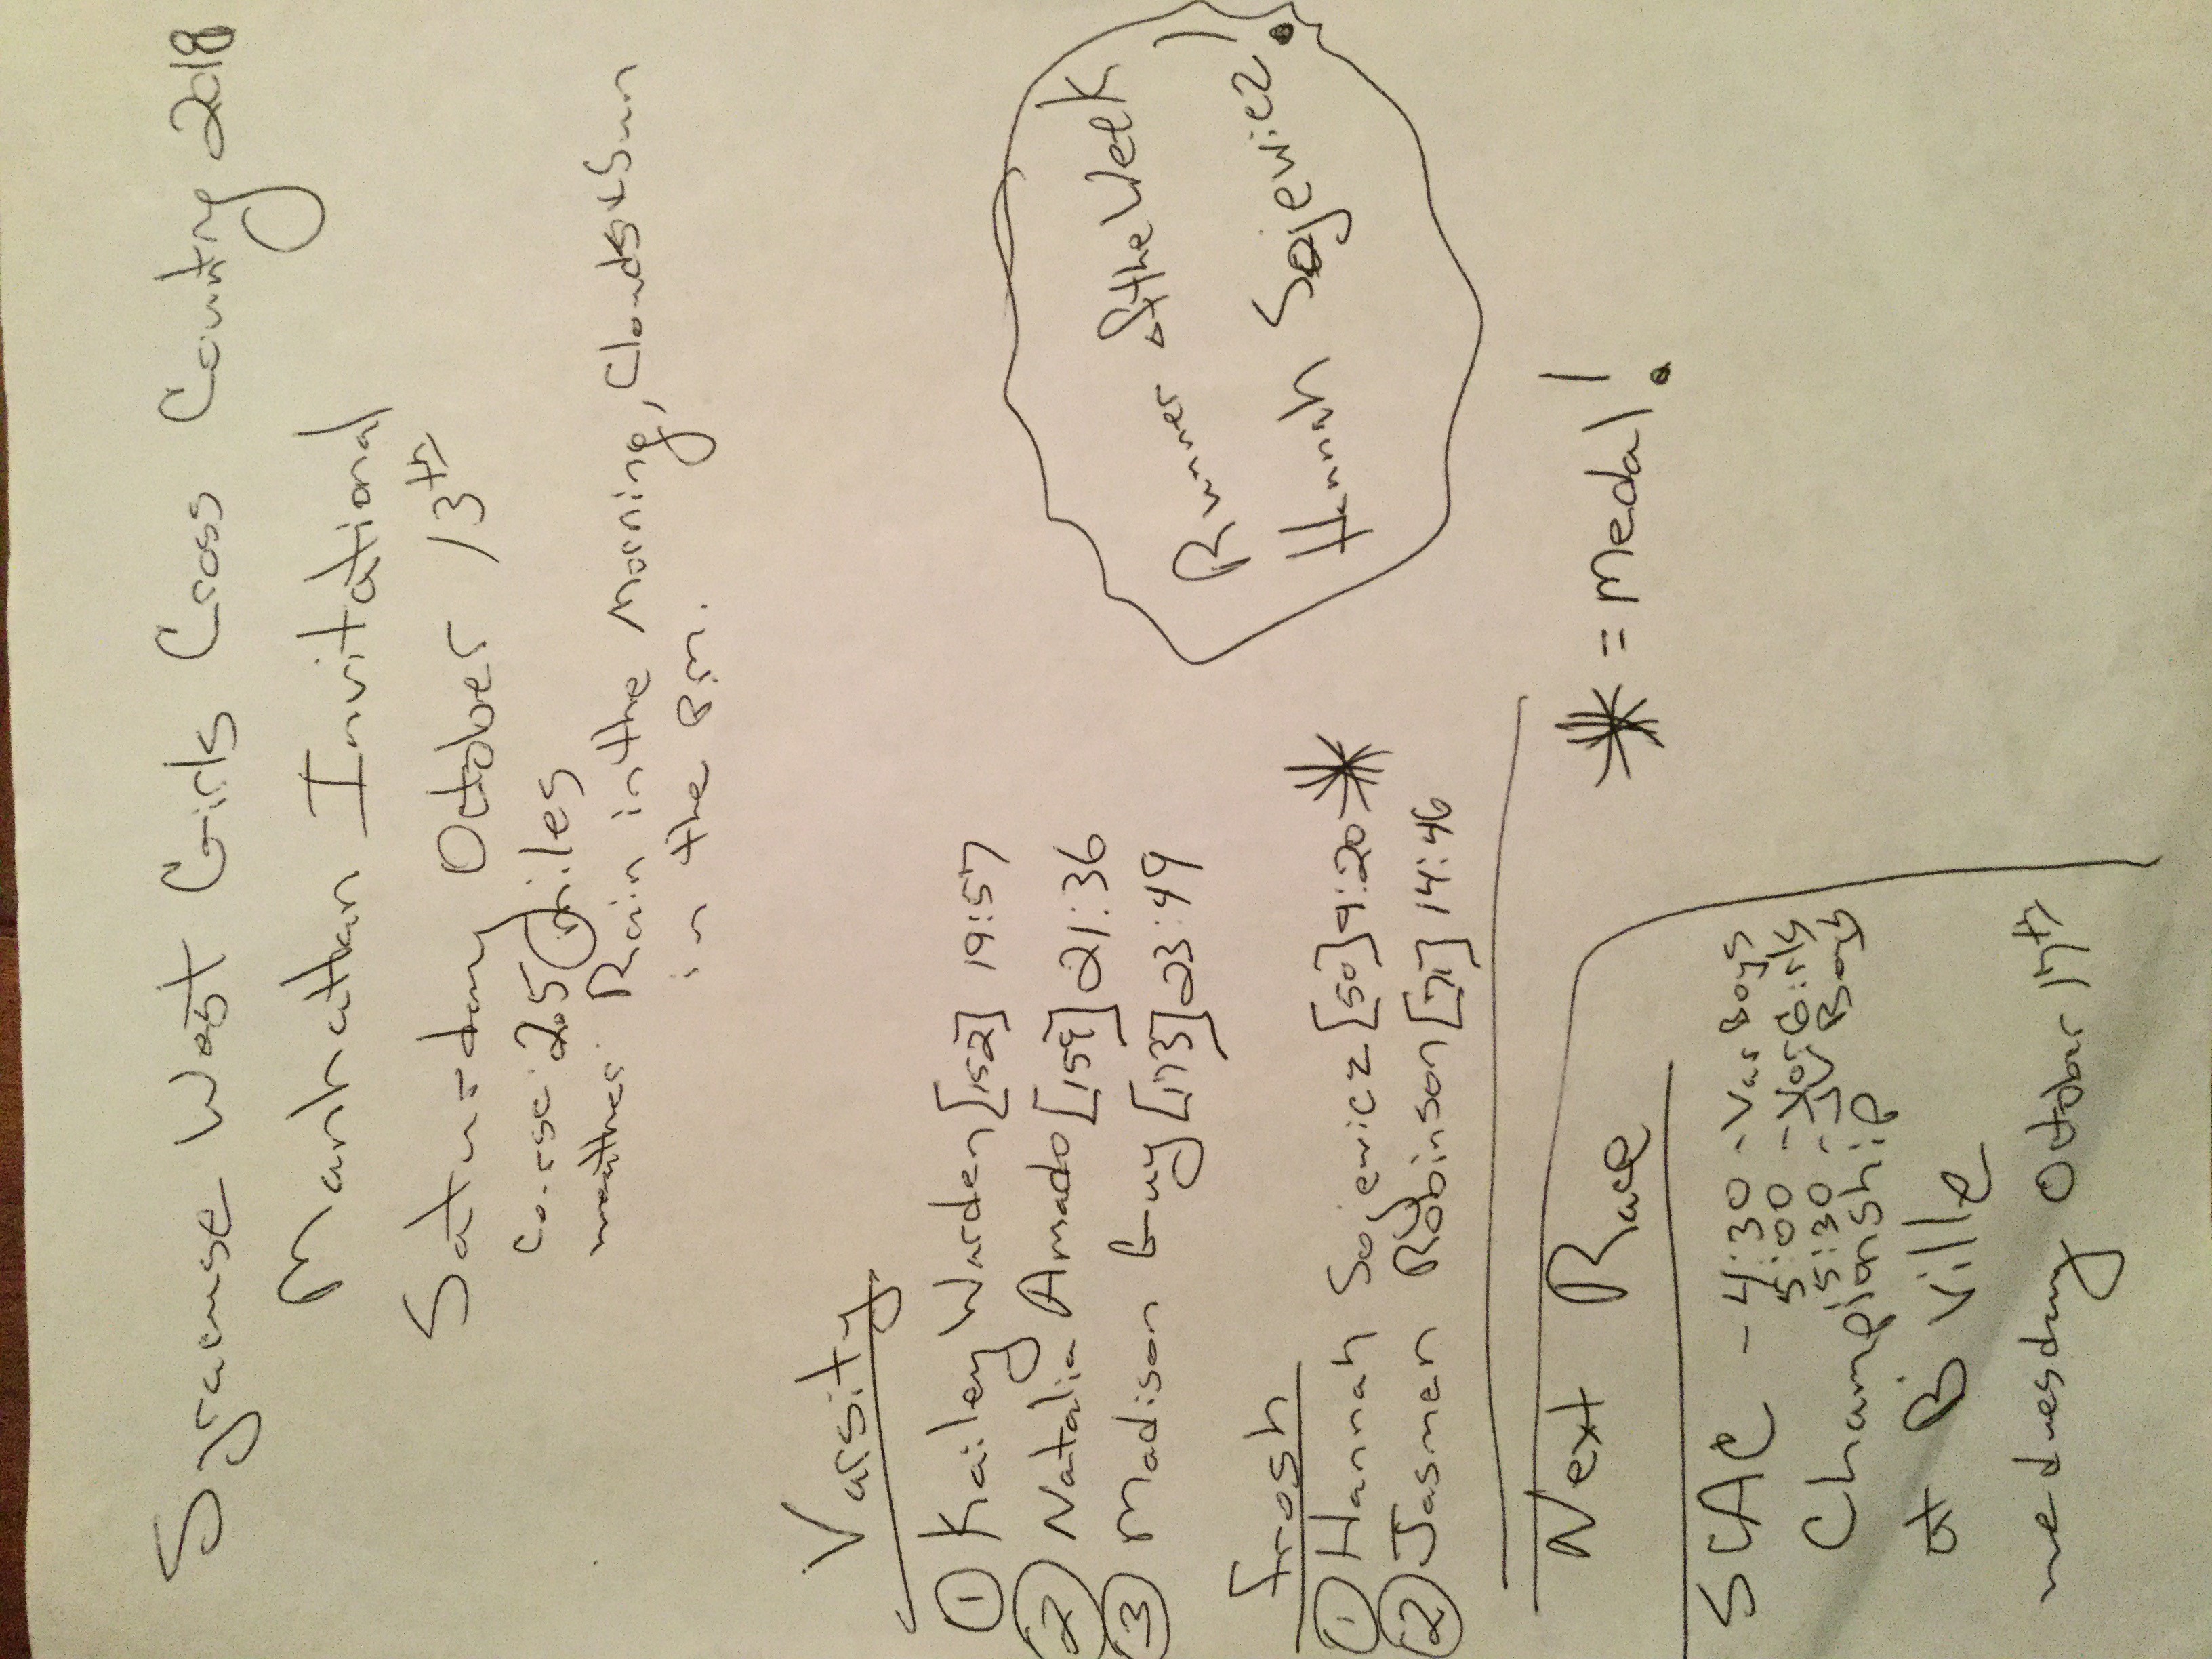 Syracuse West Girls Cross Country 2018
Manhattan Invitational
Saturday October 13th
Course: 2.5 miles
weather: Rain in the Morning, Clouds & Sun
in the P.M.
Varsity
① Kailey Warden [152] 19:57
② Natalia Amado [159] 21:36
③ Madison Guy [173] 23:49
Frosh
① Hannah Sojewicz [50] 9:20 *
② Jasmen Robinson [71] 14:46
Runner of the Week
Hannah Sojewicz!
* = Medal!
Next Race
SCAC - 4:30 - Var Boys
5:00 - Var Girls
5:30 - JV Boys
Championship
at B'Ville
Wednesday October 17th